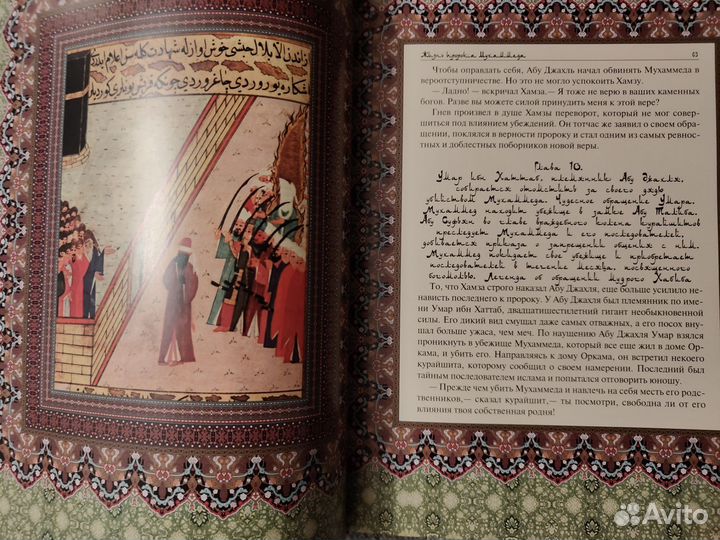 زاندن الا بلال حبشی خوش اوازله شهادت كلمه سن اعلام
Жизнь пророка Мухаммеда 63
Чтобы оправдать себя, Абу Джахль начал обвинять Мухаммеда в
вероотступничестве. Но это не могло успокоить Хамзу.
— Ладно! — вскричал Хамза.— Я тоже не верю в ваших каменных
богов. Разве вы можете силой принудить меня к этой вере?
Гнев произвел в душе Хамзы переворот, который не мог совер-
шиться под влиянием убеждений. Он тотчас же заявил о своем об-
ращении, поклялся в верности пророку и стал одним из самых ревност-
ных и доблестных поборников новой веры.
Глава 10.
Умар ибн Хаттаб, племянник Абу Джахля,
собирается отомстить за своего дядю
убийством Мухаммеда. Чудесное обращение Умара.
Мухаммед находит убежище в замке Абу Талиба.
Абу Суфьян во главе враждебного колена курайшитов
преследует Мухаммеда и его последователей,
добивается приказа о запрещении общения с ним.
Мухаммед покидает свое убежище и приобретает
последователей в течение месяца, посвященного
богомолью. Легенда об обращении мудрого Хабиба
То, что Хамза строго наказал Абу Джахля, еще больше усилило не-
нависть последнего к пророку. У Абу Джахля был племянник по име-
ни Умар ибн Хаттаб, двадцатишестилетний гигант необыкновенной
силы. Его дикий вид смущал даже самых отважных, а его посох внушал
больше ужаса, чем меч. По наущению Абу Джахля Умар взялся
проникнуть в убежище Мухаммеда, который все еще жил в доме Ор-
кама, и убить его. Направляясь к дому Оркама, он встретил некоего
курайшита, которому сообщил о своем намерении. Последний был
тайным последователем ислама и попытался отговорить юношу.
— Прежде чем убить Мухаммеда и навлечь на себя месть его род-
ственников,— сказал курайшит,— ты посмотри, свободна ли от его
влияния твоя собственная родня!
Avito